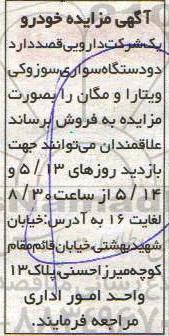 آگهی مزایده خودرو
یک شرکت دارویی قصد دارد
دو دستگاه سواری سوزوکی
ویتارا و مگان را بصورت
مزایده به فروش برساند
علاقمندان می‌توانند جهت
بازدید روزهای ۵/۱۳ و
۵/۱۴ از ساعت ۸/۳۰
لغایت ۱۶ به آدرس: خیابان
شهید بهشتی، خیابان قائم مقام
کوچه میرزا حسنی پلاک ۱۳
واحد امور اداری
مراجعه فرمایند.